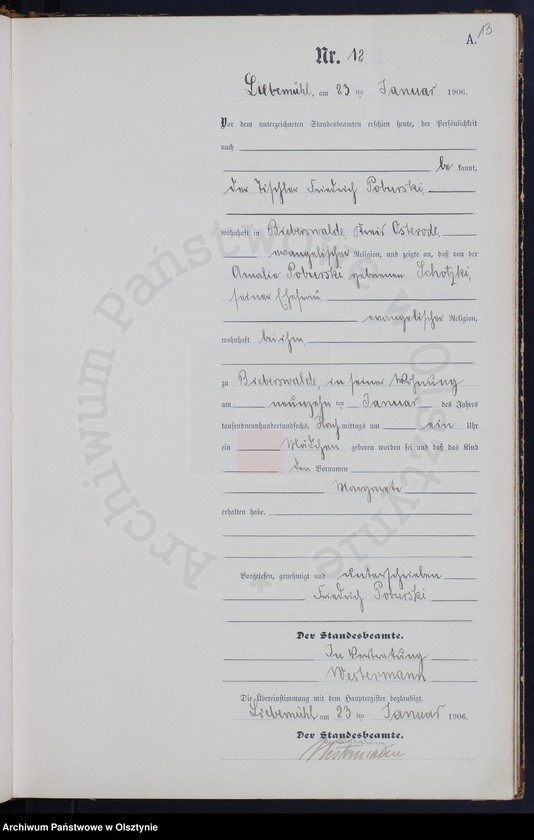 13
A.
Nr. 12
Liebemühl, am 23 ten Januar 1906.
Vor dem unterzeichneten Standesbeamten erschien heute, der Persönlichkeit
nach
be kannt,
der Tischler Friedrich Poburski,
wohnhaft in Bieberswalde, Kreis Osterode,
evangelischer Religion, und zeigte an, daß von der
Amalie Poburski geborenen Schotzki,
seiner Ehefrau,
evangelischer Religion,
wohnhaft bei ihm,
zu Bieberswalde, in seiner Wohnung
am neunzehn ten Januar des Jahres
tausendneunhundertundsechs, Nachmittags um ein Uhr
ein Mädchen geboren worden sei und daß das Kind
den Vornamen
Margarete
erhalten habe.
Vorgelesen, genehmigt und unterschrieben
Friedrich Poburski
Der Standesbeamte.
In Vertretung
Westermann
Die Übereinstimmung mit dem Hauptregister beglaubigt.
Liebemühl am 23 ten Januar 1906.
Der Standesbeamte.
In Vertretung
Westermann
Archiwum Państwowe w Olsztynie *
Archiwum Państwowe w Olsztynie